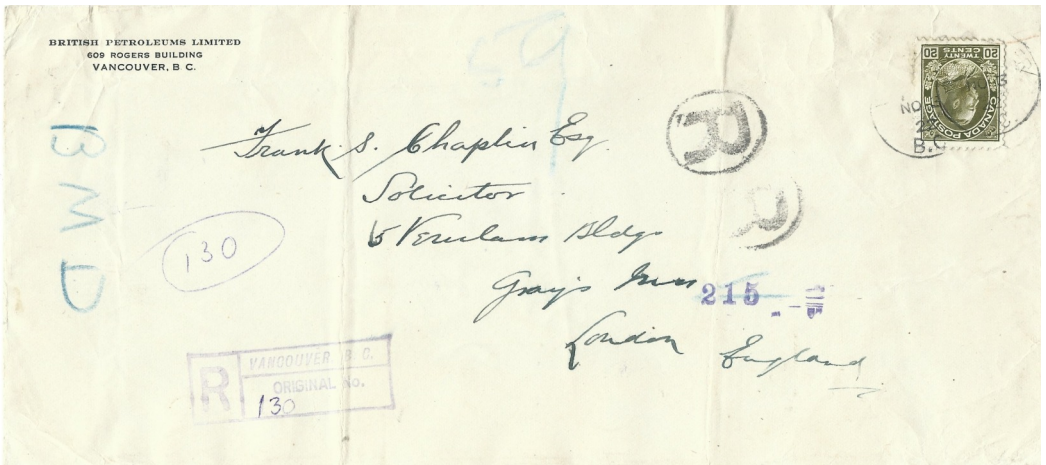 BRITISH PETROLEUMS LIMITED
609 ROGERS BUILDING
VANCOUVER, B C.
20 TWENTY CENTS 20
CANADA POSTAGE
NO
2
B.C
R
R
Frank S. Chaplin Esq.
Solicitor
Verulam Bldgs
Gray's Inn
London England
215
B M D
130
R
VANCOUVER B C.
ORIGINAL No.
130